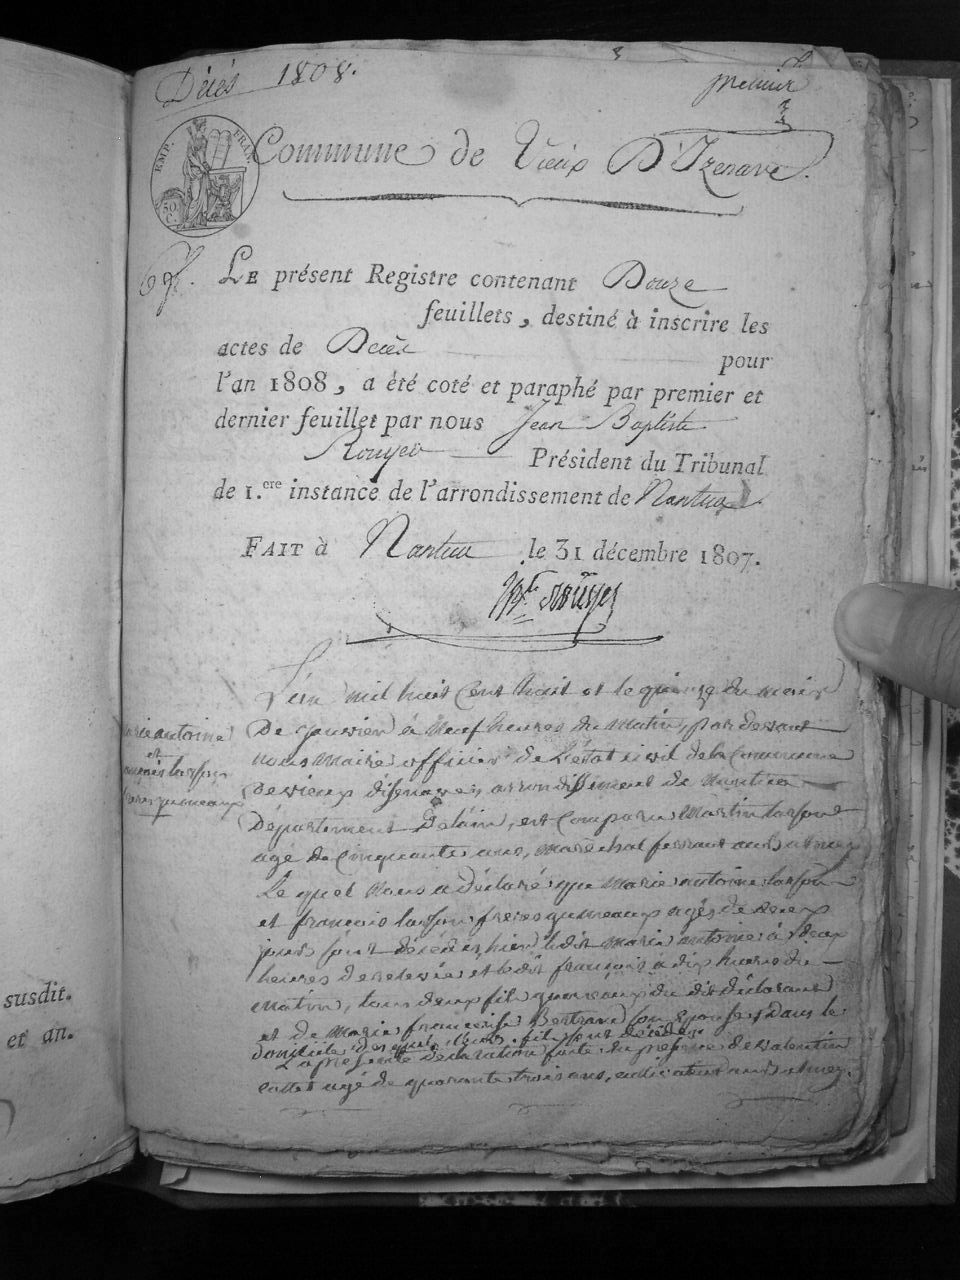 Décès 1808.
premier
EMP. FRAN.
50 C.
Commune de Vieux D'Izenave.
LE présent Registre contenant Douze
feuillets, destiné à inscrire les
actes de Décès pour
l'an 1808, a été coté et paraphé par premier et
dernier feuillet par nous Jean Baptiste
Rouyer Président du Tribunal
de 1.ere instance de l'arrondissement de Nantua.
FAIT à Nantua le 31 décembre 1807.
L'an mil huit Cent huit et le quinze du mois
De janvier à Neuf heures du Matin, par devant
nous Maire officier de L'état civil de la Commune
De vieux disenave, arrondissiment de Nantua
Département Delain, est Comparu Martin
agé de Cinquante ans, Marechal ferrant
Le quel Nous a déclaré que Marie antoine
et françois freres jumeaux agés de deux
jours sont décédés, hier, ledit Marie antoine à deux
heures de relevée, et ledit françois à dix heures du
Matin, tous deux fils jumeaux du dit déclarant
et de Marie françoise Bertrand son Epouse, dans le
domicile des quels leurs fils sont décédés.
La presente declaration faite en presence de valentin
agé de quarante trois ans, cultivateur
Marie antoine
et
françois
freres jumeaux
susdit.
et an.